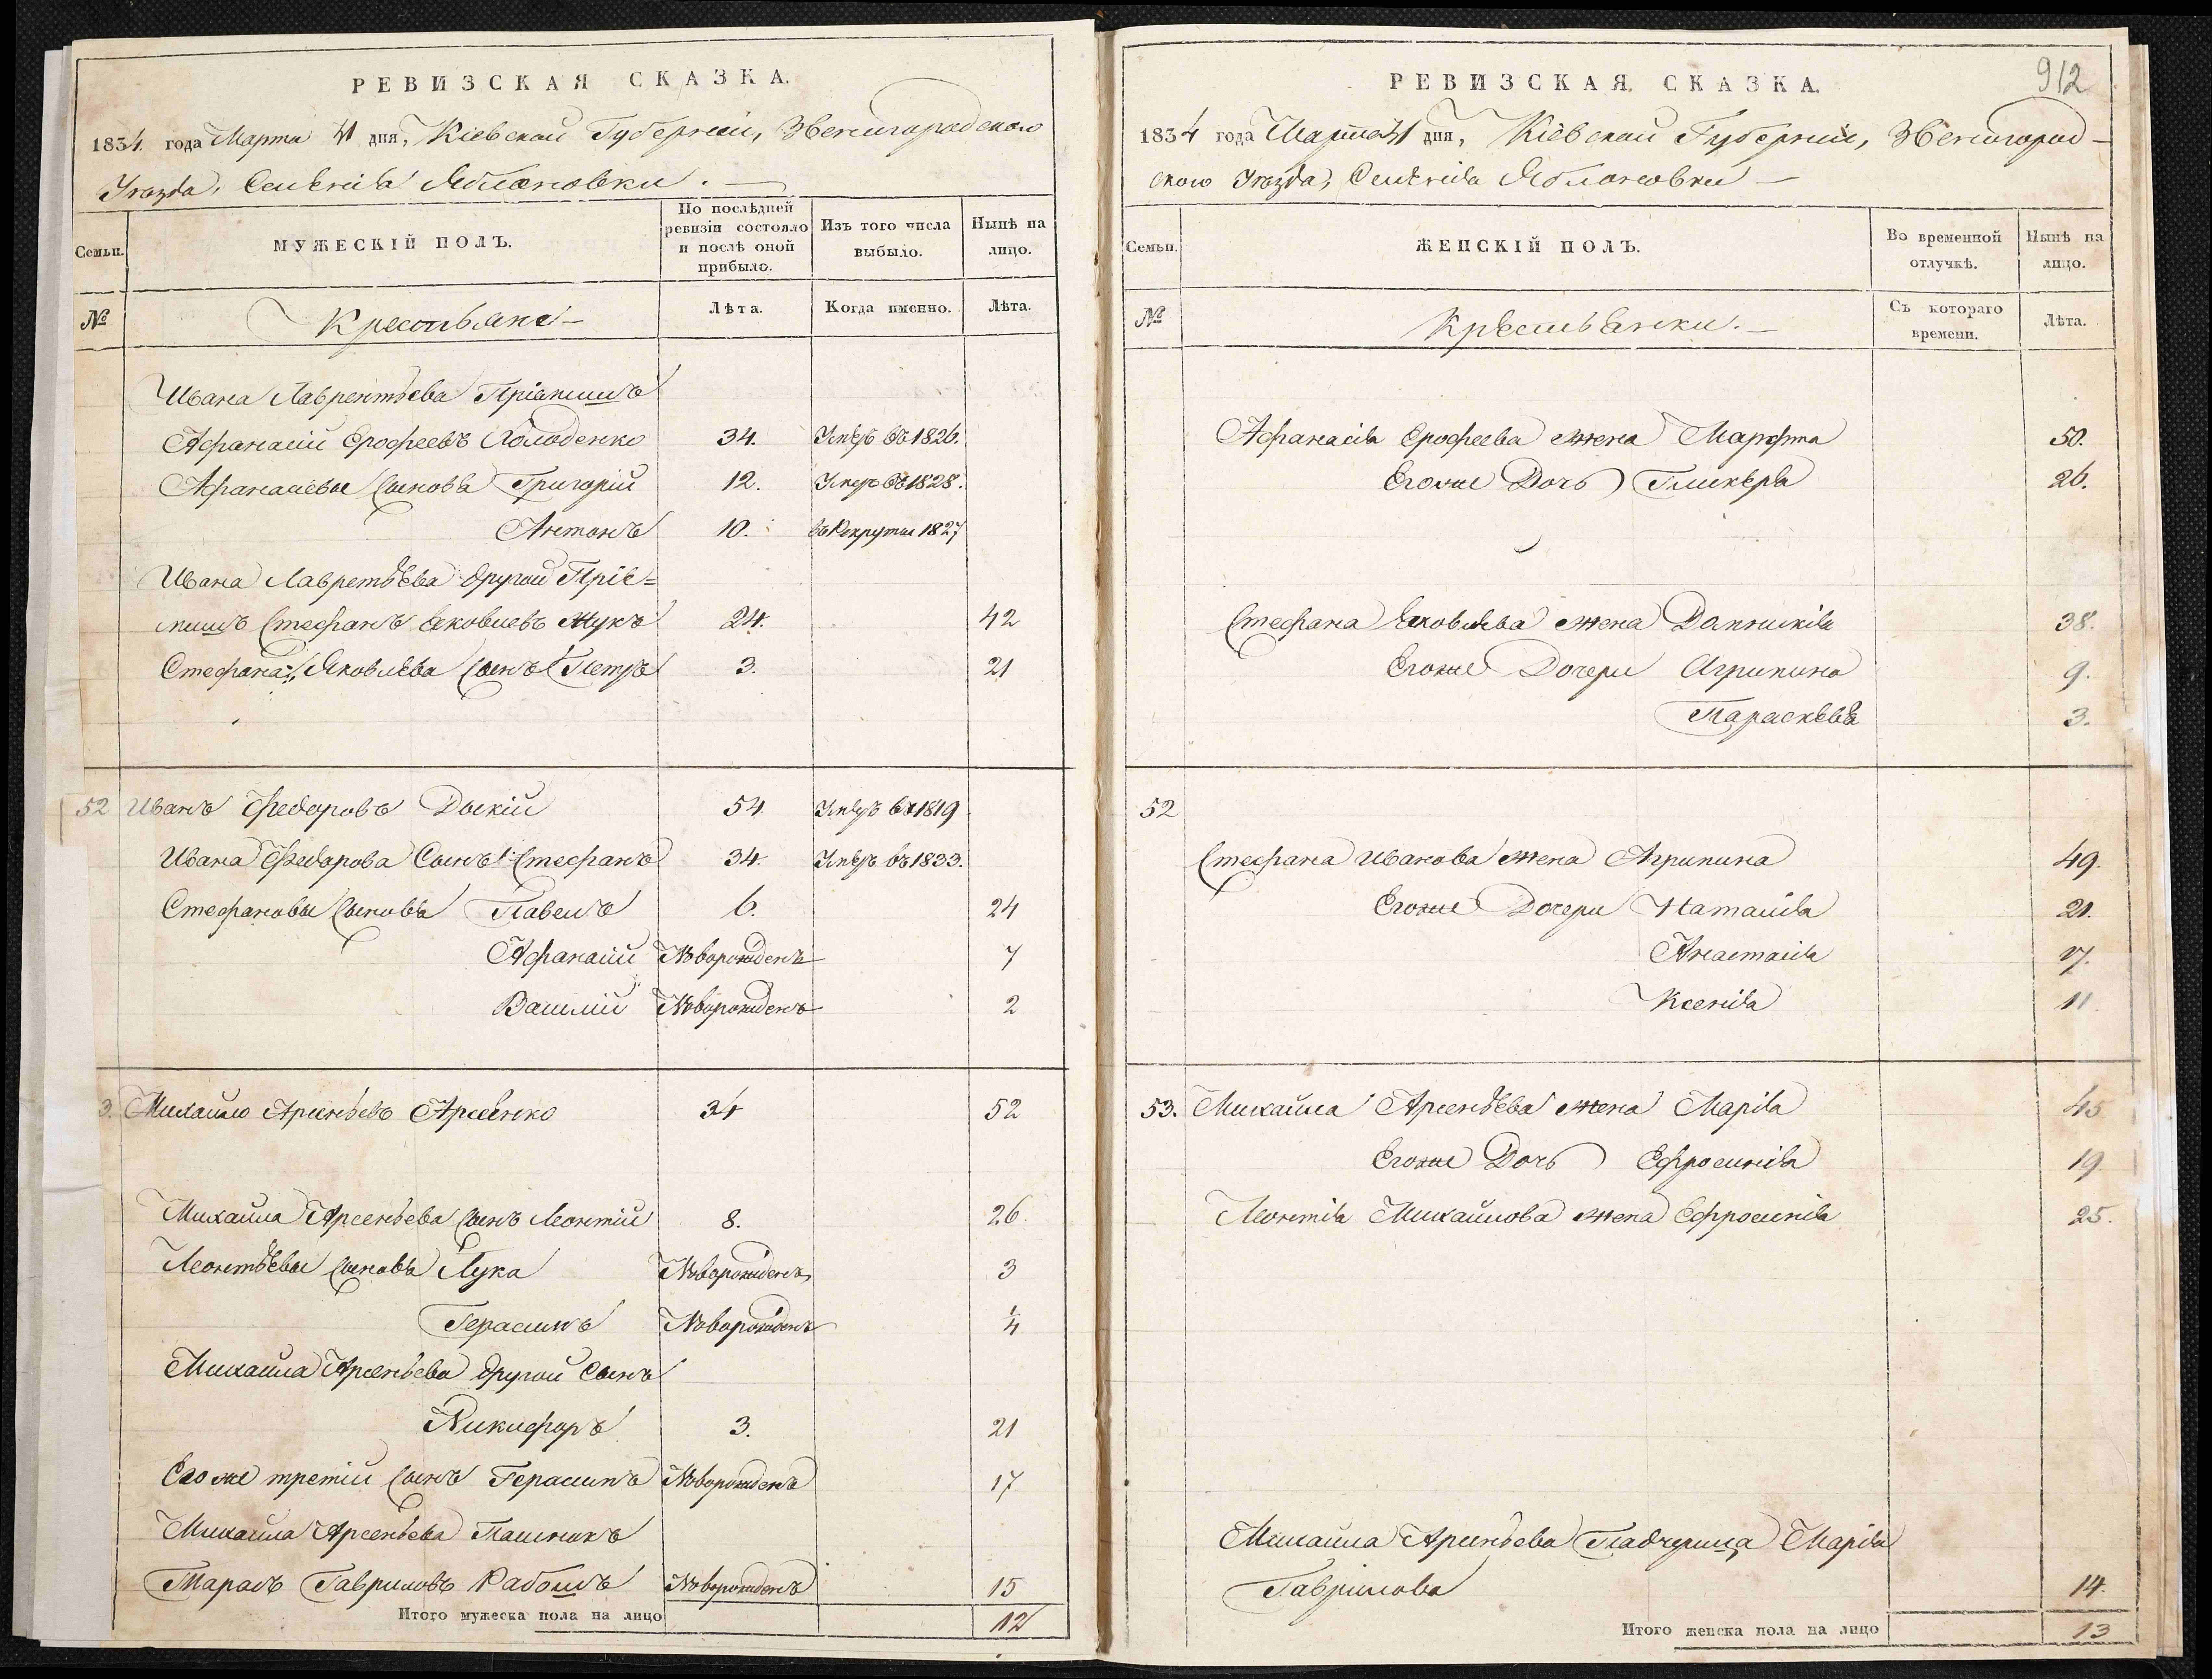 РЕВИЗСКАЯ СКАЗКА.
1834 года Марта 31 дня, Кіевской Губерніи, Звенигородского
Уѣзда, Селенія Яблоновки. —
Семьи.
МУЖЕСКІЙ ПОЛЪ.
По послѣдней ревизіи состояло и послѣ оной прибыло.
Изъ того числа выбыло.
Нынѣ на лицо.
№
Крестьяне —
Лѣта.
Когда именно.
Лѣта.
Ивана Лаврентьева Пріемышъ
Афанасій Ерофеевъ Холоденко 34. Умеръ въ 1826.
Афанасіевы Сыновья Григорій 12. Умеръ въ 1828.
Антонъ 10. въ Рекруты 1827
Ивана Лавретьева другой Пріе=
мышъ Стефанъ Яковлевъ Жукъ 24. 42
Стефана Яковлева Сынъ Петръ 3. 21
52 Иванъ Федоровъ Дыкій 54 Умеръ въ 1819
Ивана Федорова Сынъ Стефанъ 34. Умеръ въ 1833.
Стефановы Сыновья Павелъ 6. 24
Афанасій Новорожденъ 7
Василій Новорожденъ 2
3. Михайло Арсеньевъ Арсенко 34 52
Михайла Арсеньева Сынъ Леонтій 8. 26
Леонтьевы Сыновья Лука Новорожденъ 3
Герасимъ Новорожденъ 4
Михайла Арсеньева другой Сынъ
Никифоръ 3. 21
Его же третій Сынъ Герасимъ Новорожденъ 17
Михайла Арсеньева Пасынокъ
Тарасъ Гавриловъ Новорожденъ 15
Итого мужеска пола на лицо 12
РЕВИЗСКАЯ СКАЗКА.
912
1834 года Марта 31 дня, Кіевской Губерніи, Звенигород-
ского Уѣзда, Селенія Яблоновки —
Семьи.
ЖЕНСКІЙ ПОЛЪ.
Во временной отлучкѣ.
Нынѣ на лицо.
№
Крестьянки. —
Съ котораго времени.
Лѣта.
Афанасія Ерофеева жена Марфта 50.
Егоже Дочь Гликерія 26.
Стефана Яковлева жена Домникія 38.
Егоже Дочери Агрипина 9.
Параскевія 3.
52
Стефана Иванова жена Агрипина 49.
Егоже Дочери Наталія 21.
Анастасія 17.
Ксенія 11
53. Михайла Арсеньева жена Марія 45
Егоже Дочь Ефросинія 19
Леонтія Михайлова жена Ефросинія 25.
Михайла Арсеньева Падчерица Марія
Гаврилова 14.
Итого женска пола на лицо 13